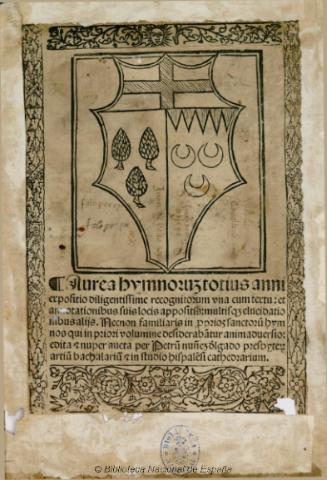 Aurea hymnorũ totius anni
expositio diligentissime recognitorum vna cum textu: et
annotationibus suis locis appositis multisqȝ elucidatio
nibus alijs. Necnon familiaris in ꝓprios sanctorũ hym
nos qui in priori volumine desiderabãtur animaduersio:
edita & nuper aucta per Petrũ nuñez ðlgado presbyteꝝ
artiũ bachalariũ & in studio hispalẽsi cathedrarium.
© Biblioteca Nacional de España